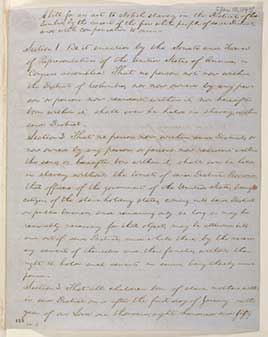 Jan 10, 1849
A bill for an act to abolish slavery in the District of Columbia, by the consent of the free white people of said District, and with compensation to owners
Section 1. Be it enacted by the Senate and House
of Representatives of the United States of America, in
Congress assembled: That no person not now within
the District of Columbia, nor now owned by any per-
son or persons now resident within it, nor hereafter
born within it, shall ever be held in slavery within
said District.
Section 2. That no person now within said District, or
now owned by any person or persons now resident within
the same, or hereafter born within it, shall ever be held
in slavery without the limits of said District: Provided,
that officers of the government of the United States, being
citizens of the slave-holding states, coming into said District
on public business, and remaining only so long as may be
reasonably necessary for that object, may be attended into
and out of said District, and while there, by the necess-
ary servants of themselves and their families, without their
right to hold such servants in service being thereby im-
paired.
Section 3. That all children born of slave mothers with-
in said District on or after the first day of January in the
year of our Lord one thousand eight hundred and fifty